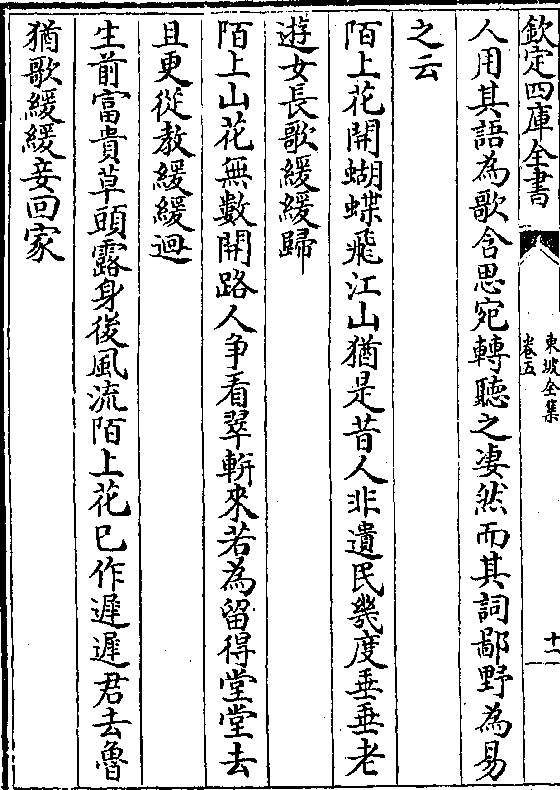 欽定四庫全書
東坡全集
卷五
十一
人用其語為歌含思宛轉聽之淒然而其詞鄙野為易
之云
陌上花開蝴蝶飛江山猶是昔人非遺民幾度垂垂老
遊女長歌緩緩歸
陌上山花無數開路人争看翠軿來若為留得堂堂去
且更從教緩緩迴
生前富貴草頭露身後風流陌上花已作遲遲君去魯
猶歌緩緩妾回家